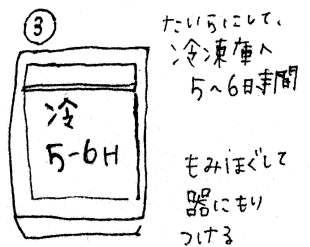 ③
冷
5-6H
たいらにして、
冷凍庫へ
5~6時間
もみほぐして
器にもり
つける